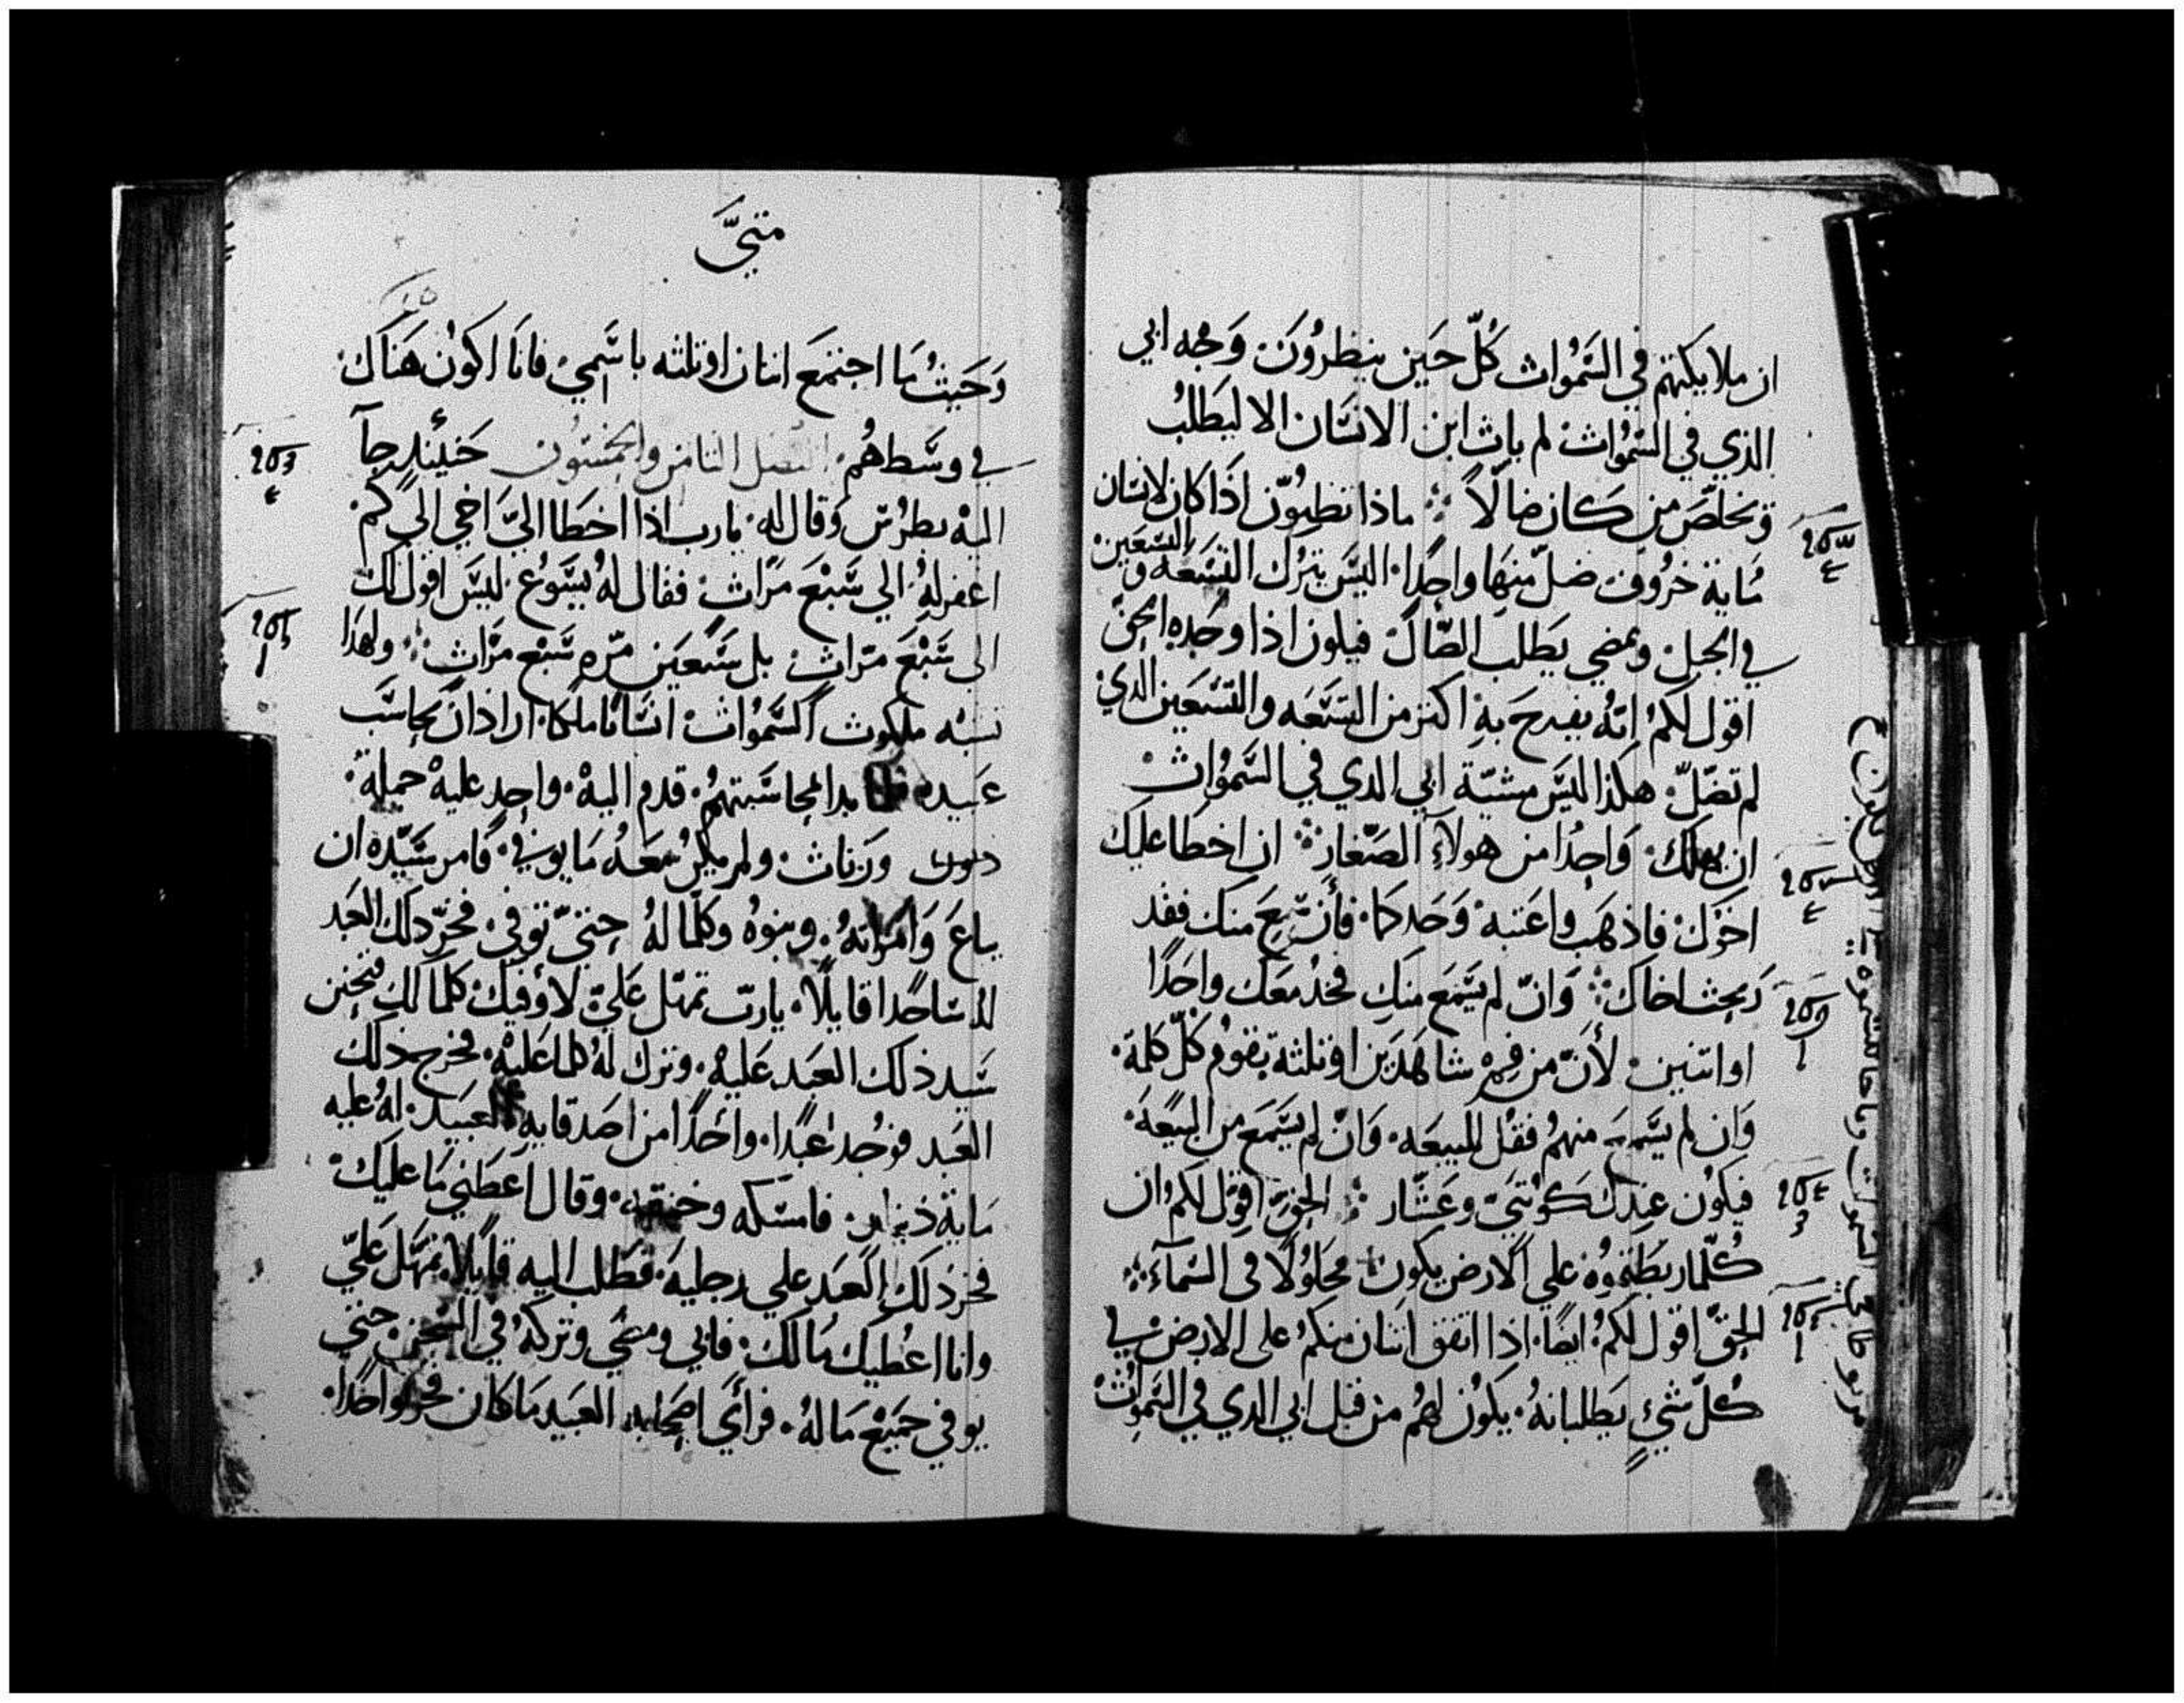 ان ملايكتهم في السَّمَوُاث كُلّ حَين ينظروُنَ وَجْه ابي
الذي في السَّمَوُاث لم ياث ابن الانسَان الا ليَطلبُ
وَ يخلصّ من كان ضالّاً ܀ ماذا تظنوّن اذَا كان لانسَان
مُاية خرُوف ضلّ منهَا واحِدًا اليسَ يترُك التسَعة و التسَعَين
في الجبل ويمضي يَطلب الضّال فيلون اذا وجَده الحِقّ
اقول لكمُ انهُ يفرحَ بهِ اكثر من التسَعَه والتسَعَين الدي
لم تضَلّ هكذا ليسَ مشيّة ابي الدي في السَّموُاث
ان يهلك وَاحِدُا من هولآءِ الصَّغار ܀ ان اخطا عليَك
اخوَك فاذهَب واعَتبه وَحَدكما فأن سَمعَ منك فقد
رَبحث اخاك ܀ وَانّ لم يسَمَع منك فخدُ معَك واحَدًا
او اتنين لأنّ من فم شاهَدَين او تلثة يقومُ كلّ كلمة
وَان لم يسَّمعَ منهمُ فقل للبيعَه وَانّ لم يسَمَع من البيعَة
فيكوُن عندك كوَتنيّ وعَشّار ܀ الحِقّ اقوَل لكمُ ان
كُلّما ربَطتموُه علي الارض يكون محَلوُلًا في السمَآء ܀
الحِقّ اقول لكمُ ايضًا اذا اتفق اتنان منكمُ على الارض في
كُلّ شيءٍ يَطلبانهُ يكوُن لهمُ من قبل ابي الدي في السَّموُاث
متيَّ
وَحَيثُ مَا اجتمعَ اتنان او تلثه باسَمي فانَا اكوُن هَنَاك
في وسَّطهُم الفصل التامن والخمسَون حَينُئدٍ جآ
اليهْ بطرسُ وَقال له يارب اذا اخطَا اليَّ اخي الي كم
اغفر لهُ الي سَّبْعَ مرّاث فقال لهُ يسَّوُع ليسَ اقول لك
الى سَّبْعَ مرّاث بل سَّبعَين مرّه سَّبعْ مرّاث ܀ ولهدَا
تشبه ملكوث السَّموُاث انسَانا ملكا ارادَ ان يحاسَب
عَبيده بدا لمحاسَّبتهمُ قدم اليهْ واحِد عليهْ جملة
وزناث ولم يكنُ معَهُ مَا يوفي فامر سَّيّده ان
يباعَ وَامرَاتهُ وبنوُه وكلّما لهُ حِتيّ توفي فخرّ دلك العَبد
سَاجدًا قايلًا يارب تمهّل عَليّ لأوفيك كلما لك فتحَنن
سَّيد ذلك العَبد عَليهْ وترك لهُ كلما عَليهْ فخرج ذلك
العَبد فوَجُد عَبدًا واحَدًا من اصَدقايه العبَيد لهُ عليه
مَاية فامسَكه وخنقه وقال اعَطني مَا عليَك
فخر دَلك العَبد علي رجليهَ فطَلب اليه قايلًا تمهَّل عَليّ
وانا اعُطيك مُالك فابي ومضَي وتركهُ في السَّجن حِتي
يوفي جميَعْ مَا لهُ فرأي اصَحابه العبَيد مَا كان فحزنوا جَدًا